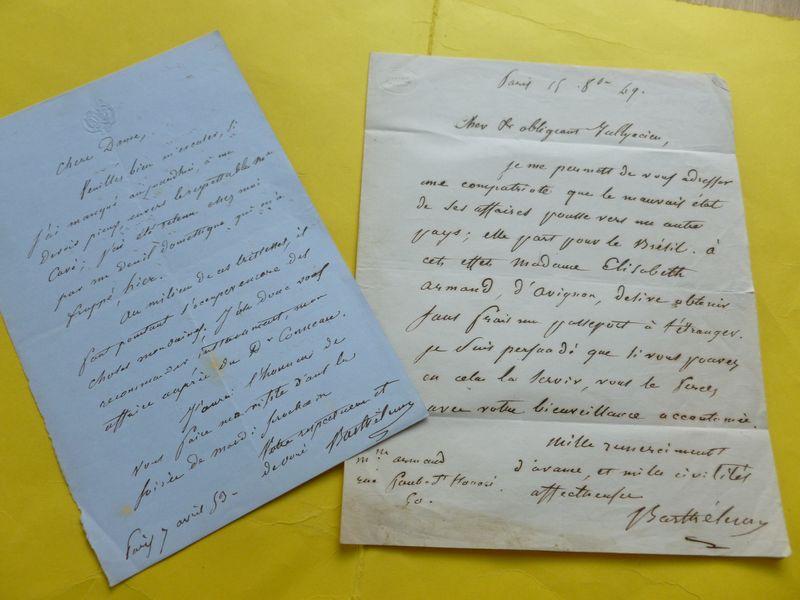 Chère Dame,
Veuillez bien m'excuser, si
j'ai manqué aujourdhui, à un
devoir pieux envers le respectable Mr
Cavé; j'ai été retenu chez moi
par un deuil domestique qui m'a
frappé, hier.
au milieu de ces tristesses, il
faut pourtant s'occuper encore des
choses mondaines. J'ose donc vous
recommander instamment, mon
affaire auprès du Dr Conneau.
J'aurai l'honneur de
vous faire ma visite dans la
soirée de mardi prochain
Votre respectueux et
devoué Barthélemy
Paris 7 avril 59-
Paris 15 8bre 49.
Cher & obligeant
je me permets de vous adresser
une compatriote que le mauvais état
de ses affaires pousse vers un autre
pays; elle part pour le Brésil. à
cet effet Madame Elisabeth
armand, d'avignon, desire obtenir
sans frais un passeport à l'étranger.
je suis persuadé que si vous pouvez
en cela la servir, vous le ferez
avec votre bienveillance accoutumée.
Mille remerciments
d'avance, et mille civilités
affectueuses
Barthélemy
Mme armand
rue Faubg St Honoré
50.